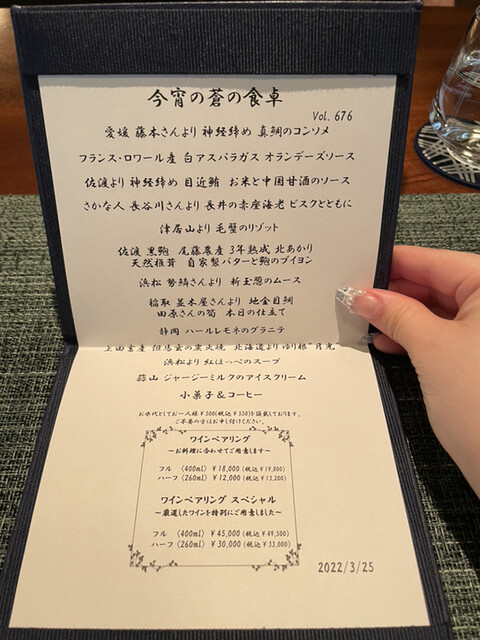 今宵の蒼の食卓
Vol. 676
愛媛 藤本さんより 神経締め 真鯛のコンソメ
フランス・ロワール産 白アスパラガス オランデーズソース
佐渡より 神経締め 目近鮪 お米と中国甘酒のソース
さかな人 長谷川さんより 長井の赤座海老 ビスクとともに
津居山より 毛蟹のリゾット
佐渡 黒鮑 尾藤農産 3年熟成 北あかり
天然椎茸 自家製バターと鮑のブイヨン
浜松 勢鱗さんより 新玉葱のムース
稲取 並木屋さんより 地金目鯛
田原さんの筍 本日の仕立て
静岡 ハールレモネのグラニテ
上田畜産 但馬玄の炭火焼 北海道よりゆり根"月光"
浜松より 紅ほっぺのスープ
蒜山 ジャージーミルクのアイスクリーム
小菓子&コーヒー
お水代としてお一人様¥500(税込¥550)を頂戴しております。
ご不要の方はお申し付けください。
ワインペアリング
〜お料理に合わせてご用意します〜
フル (400ml) ¥18,000 (税込¥19,800)
ハーフ (260ml) ¥12,000 (税込¥13,200)
ワインペアリング スペシャル
〜厳選したワインを特別にご用意しました〜
フル (400ml) ¥45,000 (税込¥49,500)
ハーフ (260ml) ¥30,000 (税込¥33,000)
2022/3/25